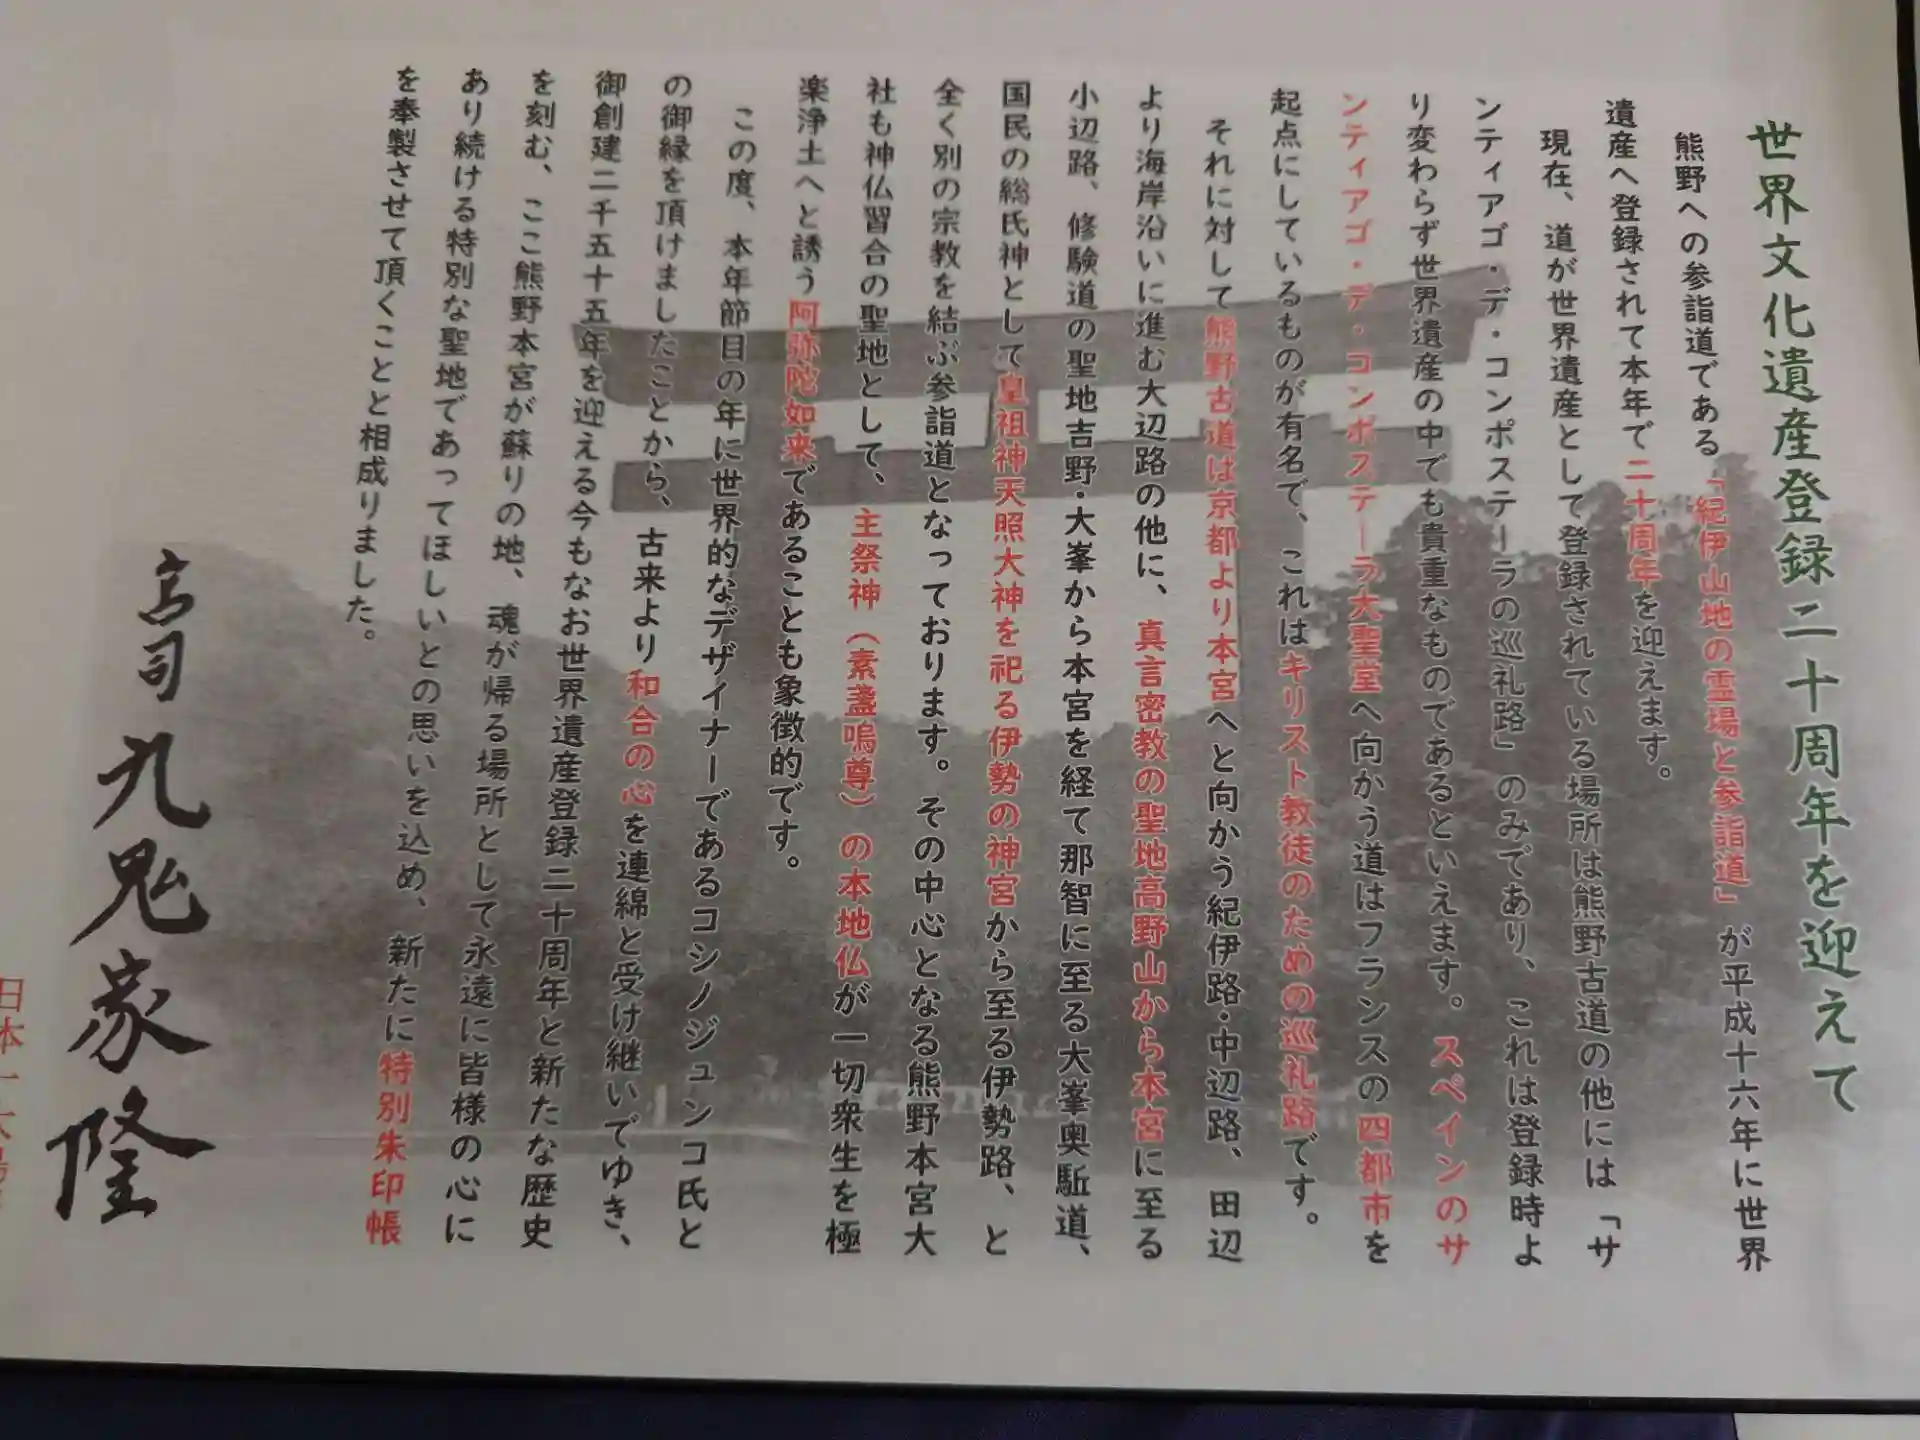 世界文化遺産登録二十周年を迎えて
熊野への参詣道である「紀伊山地の霊場と参詣道」が平成十六年に世界
遺産へ登録されて本年で二十周年を迎えます。
現在、道が世界遺産として登録されている場所は熊野古道の他には「サ
ンティアゴ・デ・コンポステーラの巡礼路」のみであり、これは登録時よ
り変わらず世界遺産の中でも貴重なものであるといえます。スペインのサ
ンティアゴ・デ・コンポステーラ大聖堂へ向かう道はフランスの四都市を
起点にしているものが有名で、これはキリスト教徒のための巡礼路です。
それに対して熊野古道は京都より本宮へと向かう紀伊路・中辺路、田辺
より海岸沿いに進む大辺路の他に、真言密教の聖地高野山から本宮に至る
小辺路、修験道の聖地吉野・大峯から本宮を経て那智に至る大峯奥駈道、
国民の総氏神として皇祖神天照大神を祀る伊勢の神宮から至る伊勢路、と
全く別の宗教を結ぶ参詣道となっております。その中心となる熊野本宮大
社も神仏習合の聖地として、主祭神（素盞嗚尊）の本地仏が一切衆生を極
楽浄土へと誘う阿弥陀如来であることも象徴的です。
この度、本年節目の年に世界的なデザイナーであるコシノジュンコ氏と
の御縁を頂けましたことから、古来より和合の心を連綿と受け継いでゆき、
御創建二千五十五年を迎える今もなお世界遺産登録二十周年と新たな歴史
を刻む、ここ熊野本宮が蘇りの地、魂が帰る場所として永遠に皆様の心に
あり続ける特別な聖地であってほしいとの思いを込め、新たに特別朱印帳
を奉製させて頂くことと相成りました。
宮司 九鬼家隆
日本一大